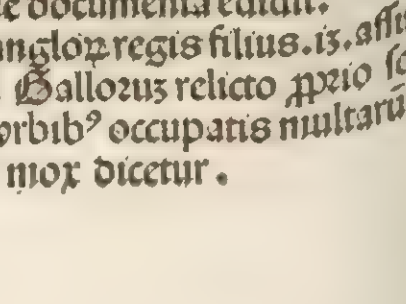 documenta edidit.
angloꝝ regis filius.is.
Galloruꝫ relicto ꝓprio
orbibꝰ occupatis multarū
mox dicetur.